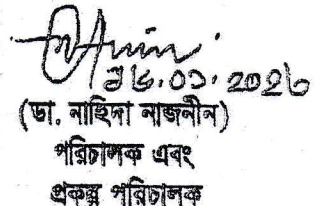 ১৬.০১.২০২৬
(ডা. নাহিদা নাজনীন)
পরিচালক এবং
প্রকল্প পরিচালক